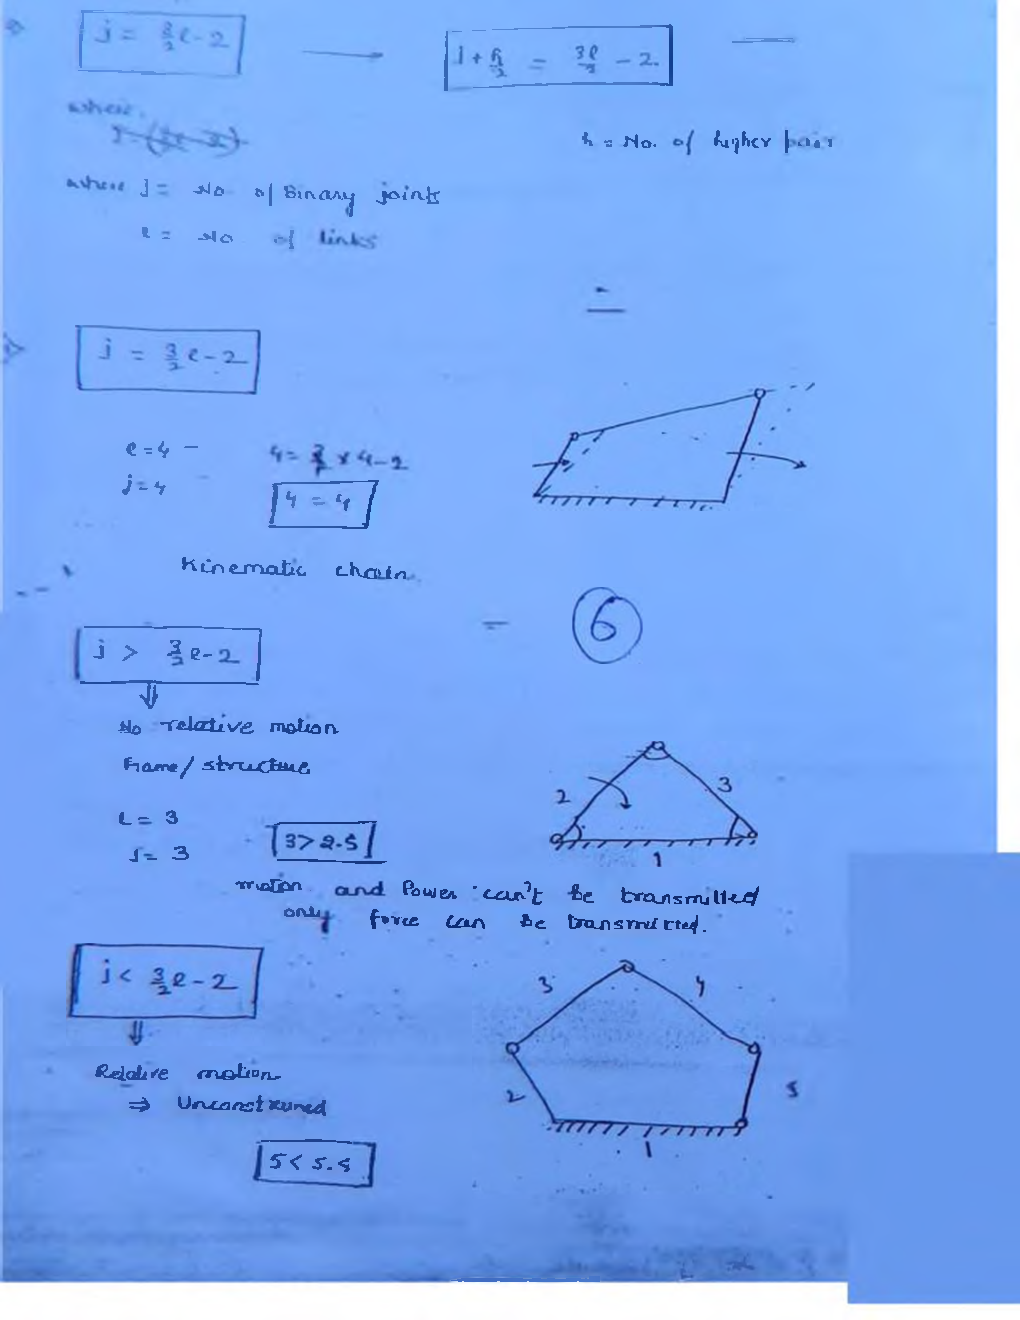 j = 3/2 l - 2 → j + h/2 = 3l/2 - 2.
where,
h = No. of higher pair
where j = No of Binary joints
l = No of links
j = 3/2 l - 2
l = 4
4 = 3/2 x 4 - 2
j = 4
4 = 4
Kinematic chain
6
j > 3/2 l - 2
⇓
No relative motion
Frame / structure
2 3
L = 3
J = 3
3 > 2.5
1
motion and Power can't be transmitted
only force can be transmitted.
j < 3/2 l - 2
3 4
⇓
Relative motion
2 5
⇒ Unconstrained
1
5 < 5.5